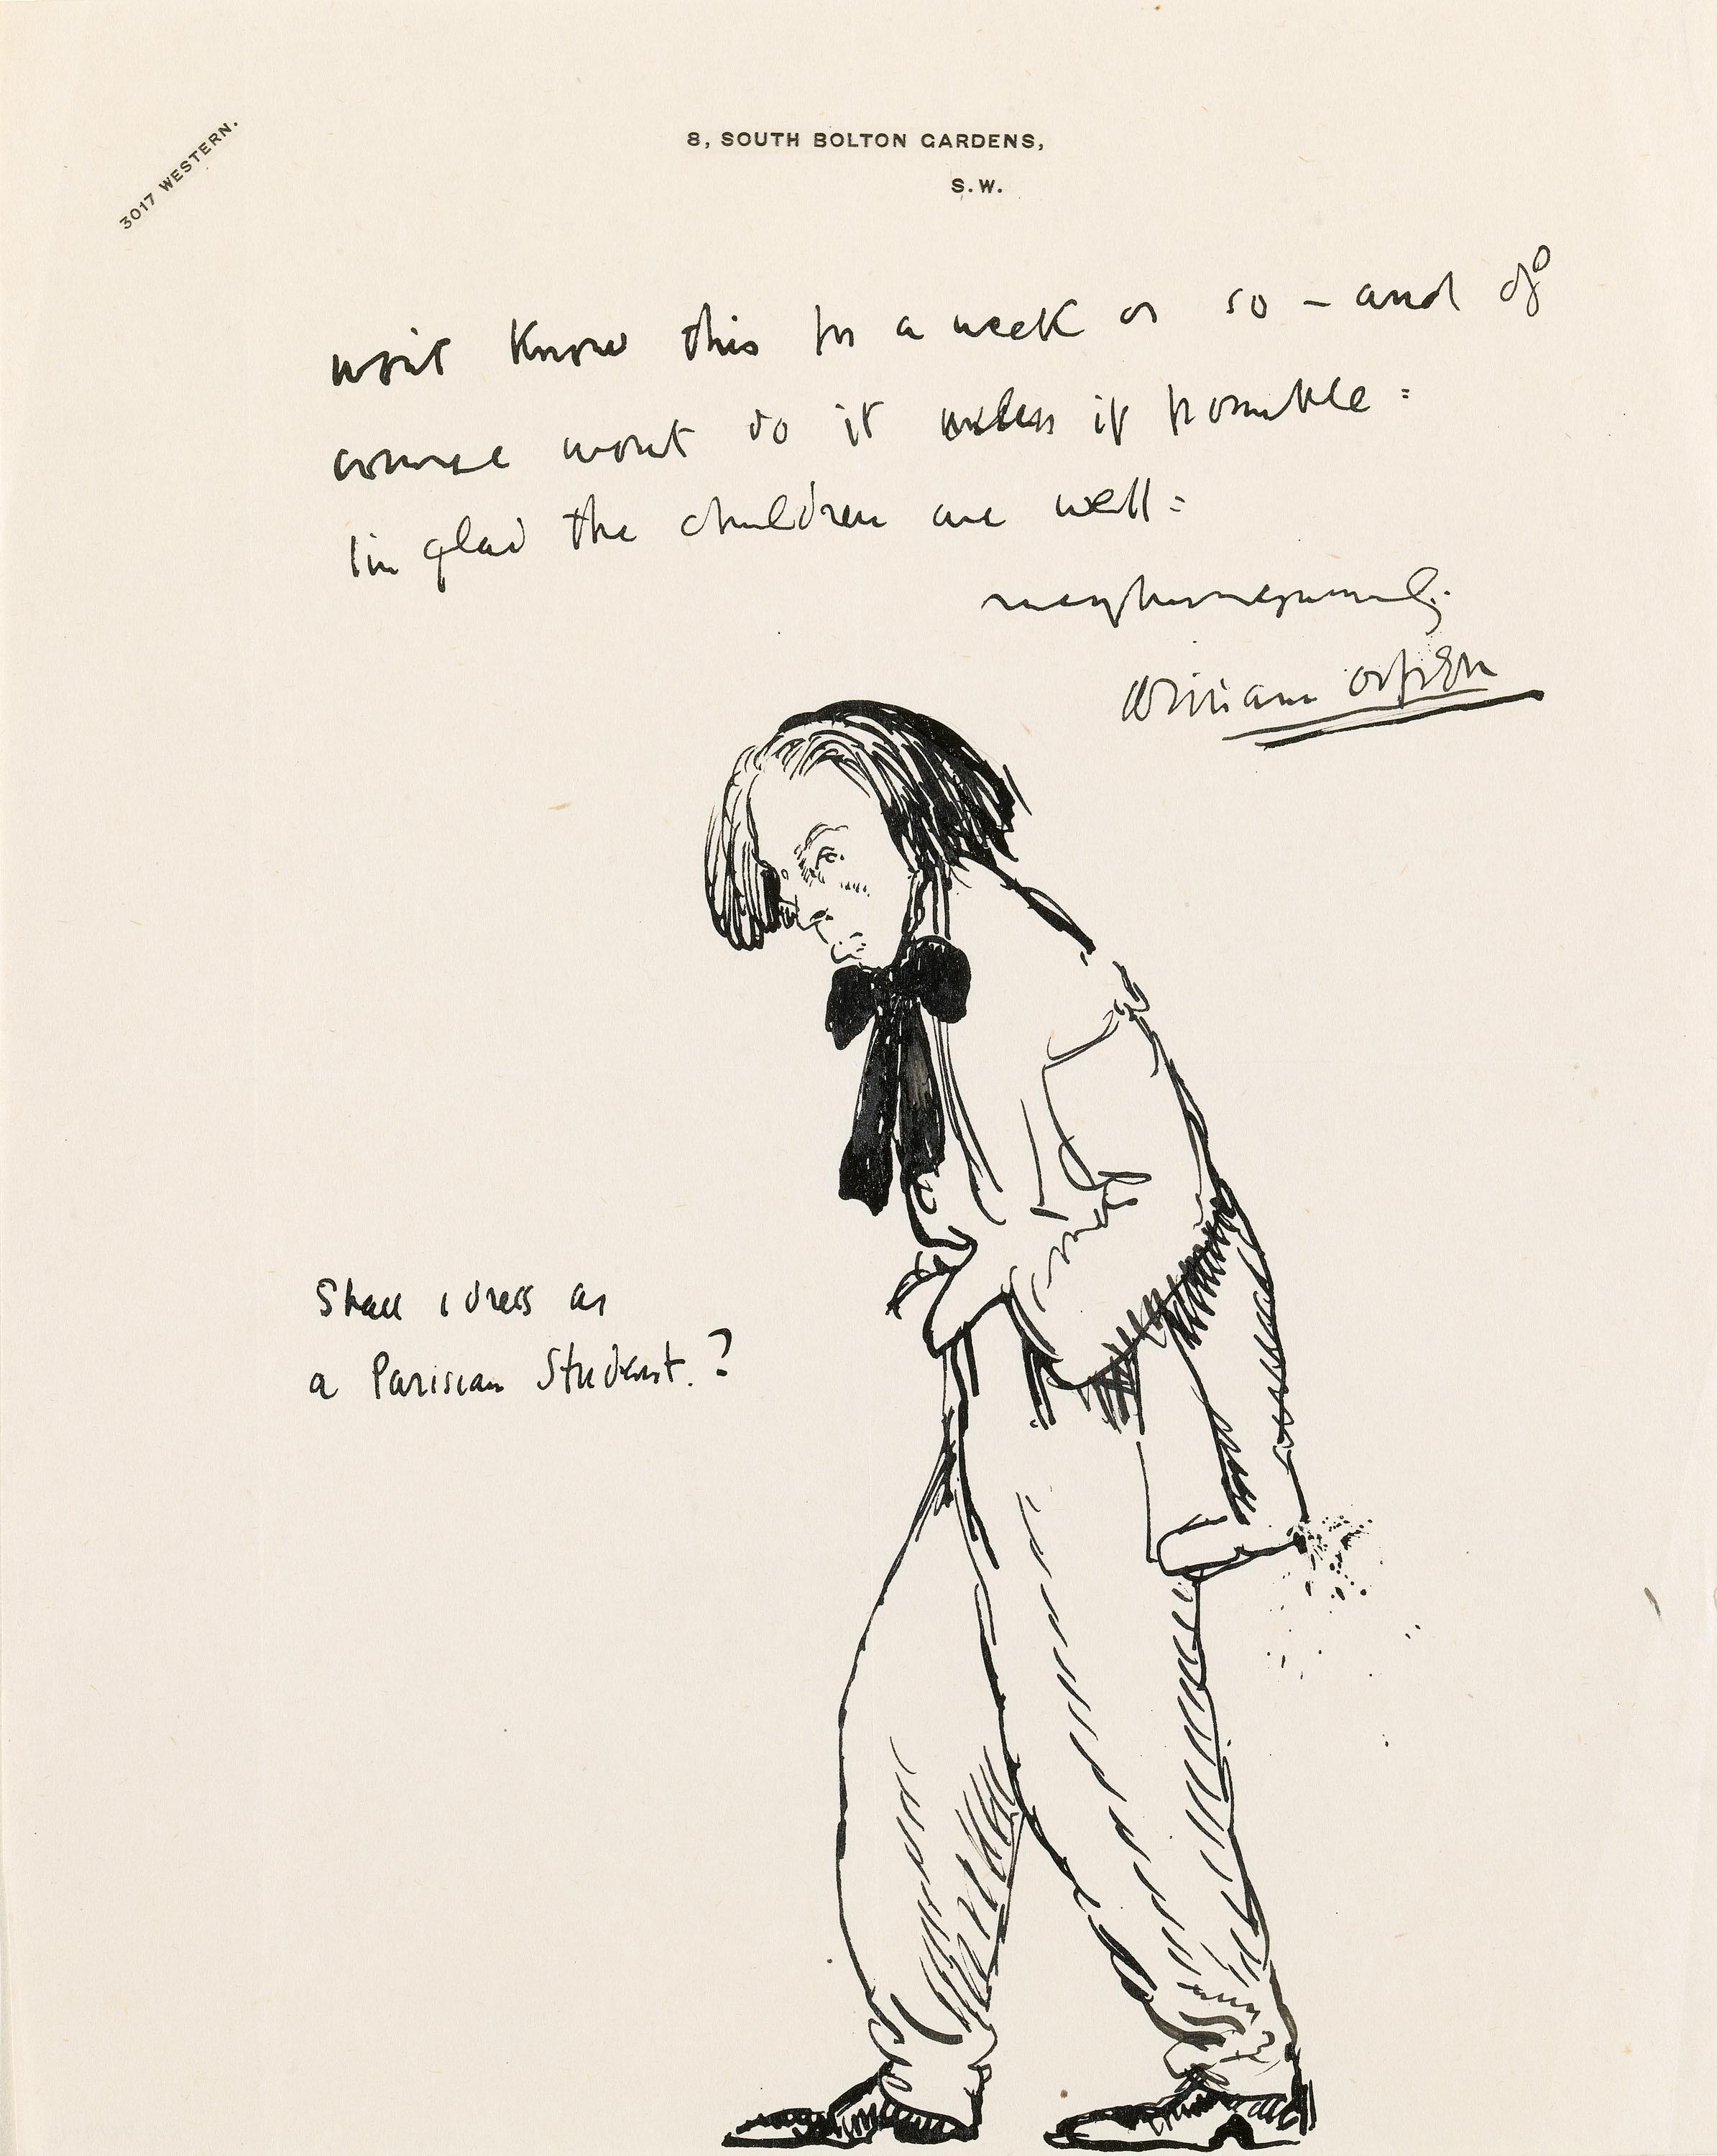 3017 WESTERN.
8, SOUTH BOLTON GARDENS,
S.W.
wont know this for a week or so – and of
course wont do it unless if possible =
Iim glad the children are well =
William Orpen
Shall I dress as
a Parisian Student.?